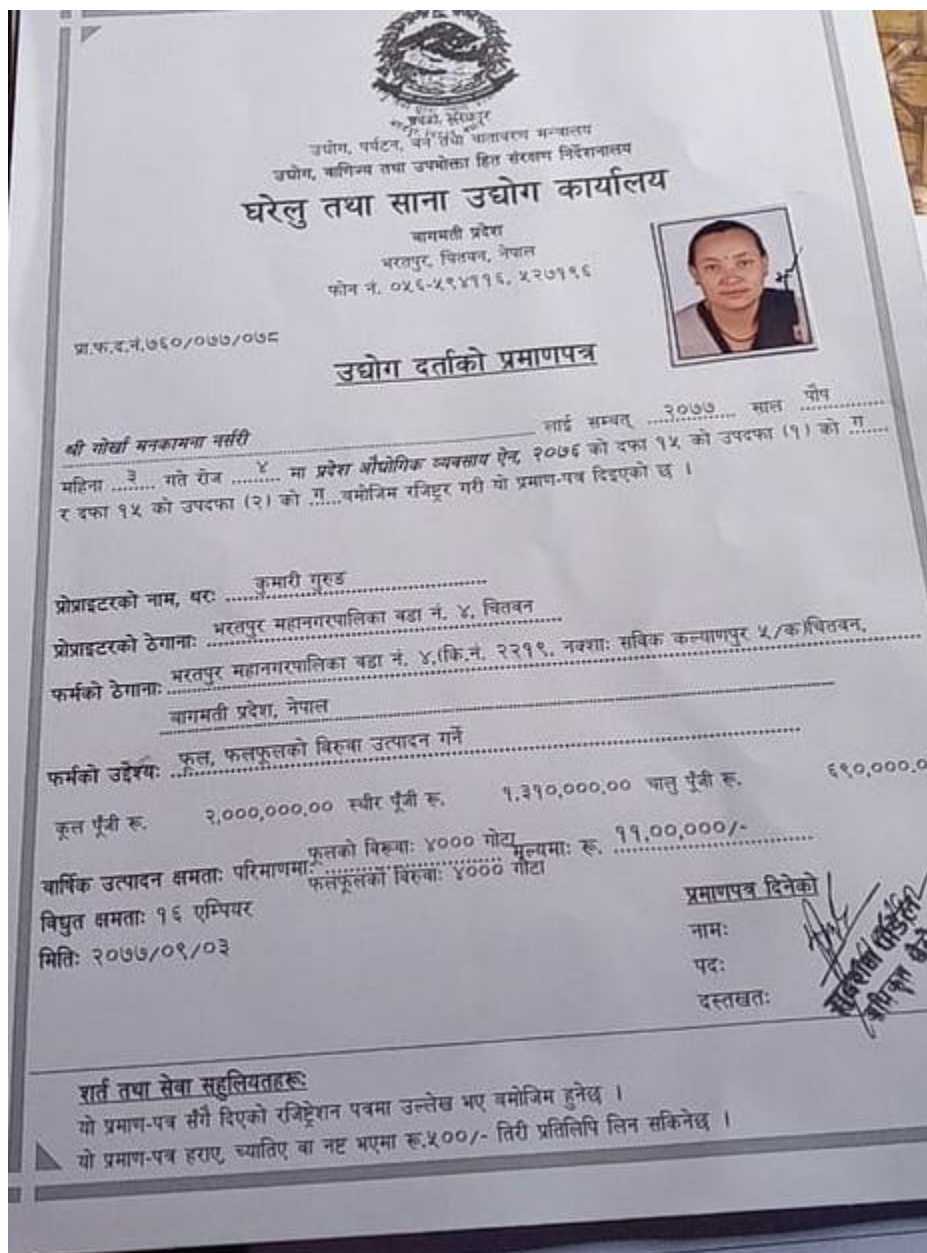 उद्योग, पर्यटन, वन तथा वातावरण मन्त्रालय
उद्योग, वाणिज्य तथा उपभोक्ता हित संरक्षण निर्देशनालय
घरेलु तथा साना उद्योग कार्यालय
बागमती प्रदेश
भरतपुर, चितवन, नेपाल
फोन नं. ०५६-५९४११६, ५२७१९६
प्रा.फ.द.नं.७६०/०७७/०७८
उद्योग दर्ताको प्रमाणपत्र
श्री गोर्खा मनकामना नर्सरी लाई सम्वत् २०७७ साल पौष
महिना ३ गते रोज ४ मा प्रदेश औद्योगिक व्यवसाय ऐन, २०७६ को दफा १५ को उपदफा (१) को ग
र दफा १५ को उपदफा (२) को ग बमोजिम रजिष्ट्रर गरी यो प्रमाण-पत्र दिइएको छ ।
प्रोप्राइटरको नाम, थरः कुमारी गुरुङ
प्रोप्राइटरको ठेगानाः भरतपुर महानगरपालिका वडा नं. ४, चितवन
फर्मको ठेगानाः भरतपुर महानगरपालिका वडा नं. ४,(कि.नं. २२१९, नक्शाः सविक कल्याणपुर ५/क)चितवन,
बागमती प्रदेश, नेपाल
फर्मको उद्देश्यः फूल, फलफूलको विरुवा उत्पादन गर्ने
कूल पूँजी रू. २,०००,०००.०० स्थीर पूँजी रू. १,३१०,०००.०० चालु पूँजी रू. ६९०,०००.०
वार्षिक उत्पादन क्षमताः परिमाणमाः फूलको विरूवाः ४००० गोटा मूल्यमाः रू. ११,००,०००/-
फलफूलको विरुवाः ४००० गोटा
विद्युत क्षमताः १६ एम्पियर
मितिः २०७७/०९/०३
प्रमाणपत्र दिनेको
नामः
पदः
दस्तखतः
शर्त तथा सेवा सहुलियतहरूः
यो प्रमाण-पत्र सँगै दिएको रजिष्ट्रेशन पत्रमा उल्लेख भए बमोजिम हुनेछ ।
यो प्रमाण-पत्र हराए, च्यातिए वा नष्ट भएमा रू.५००/- तिरी प्रतिलिपि लिन सकिनेछ ।